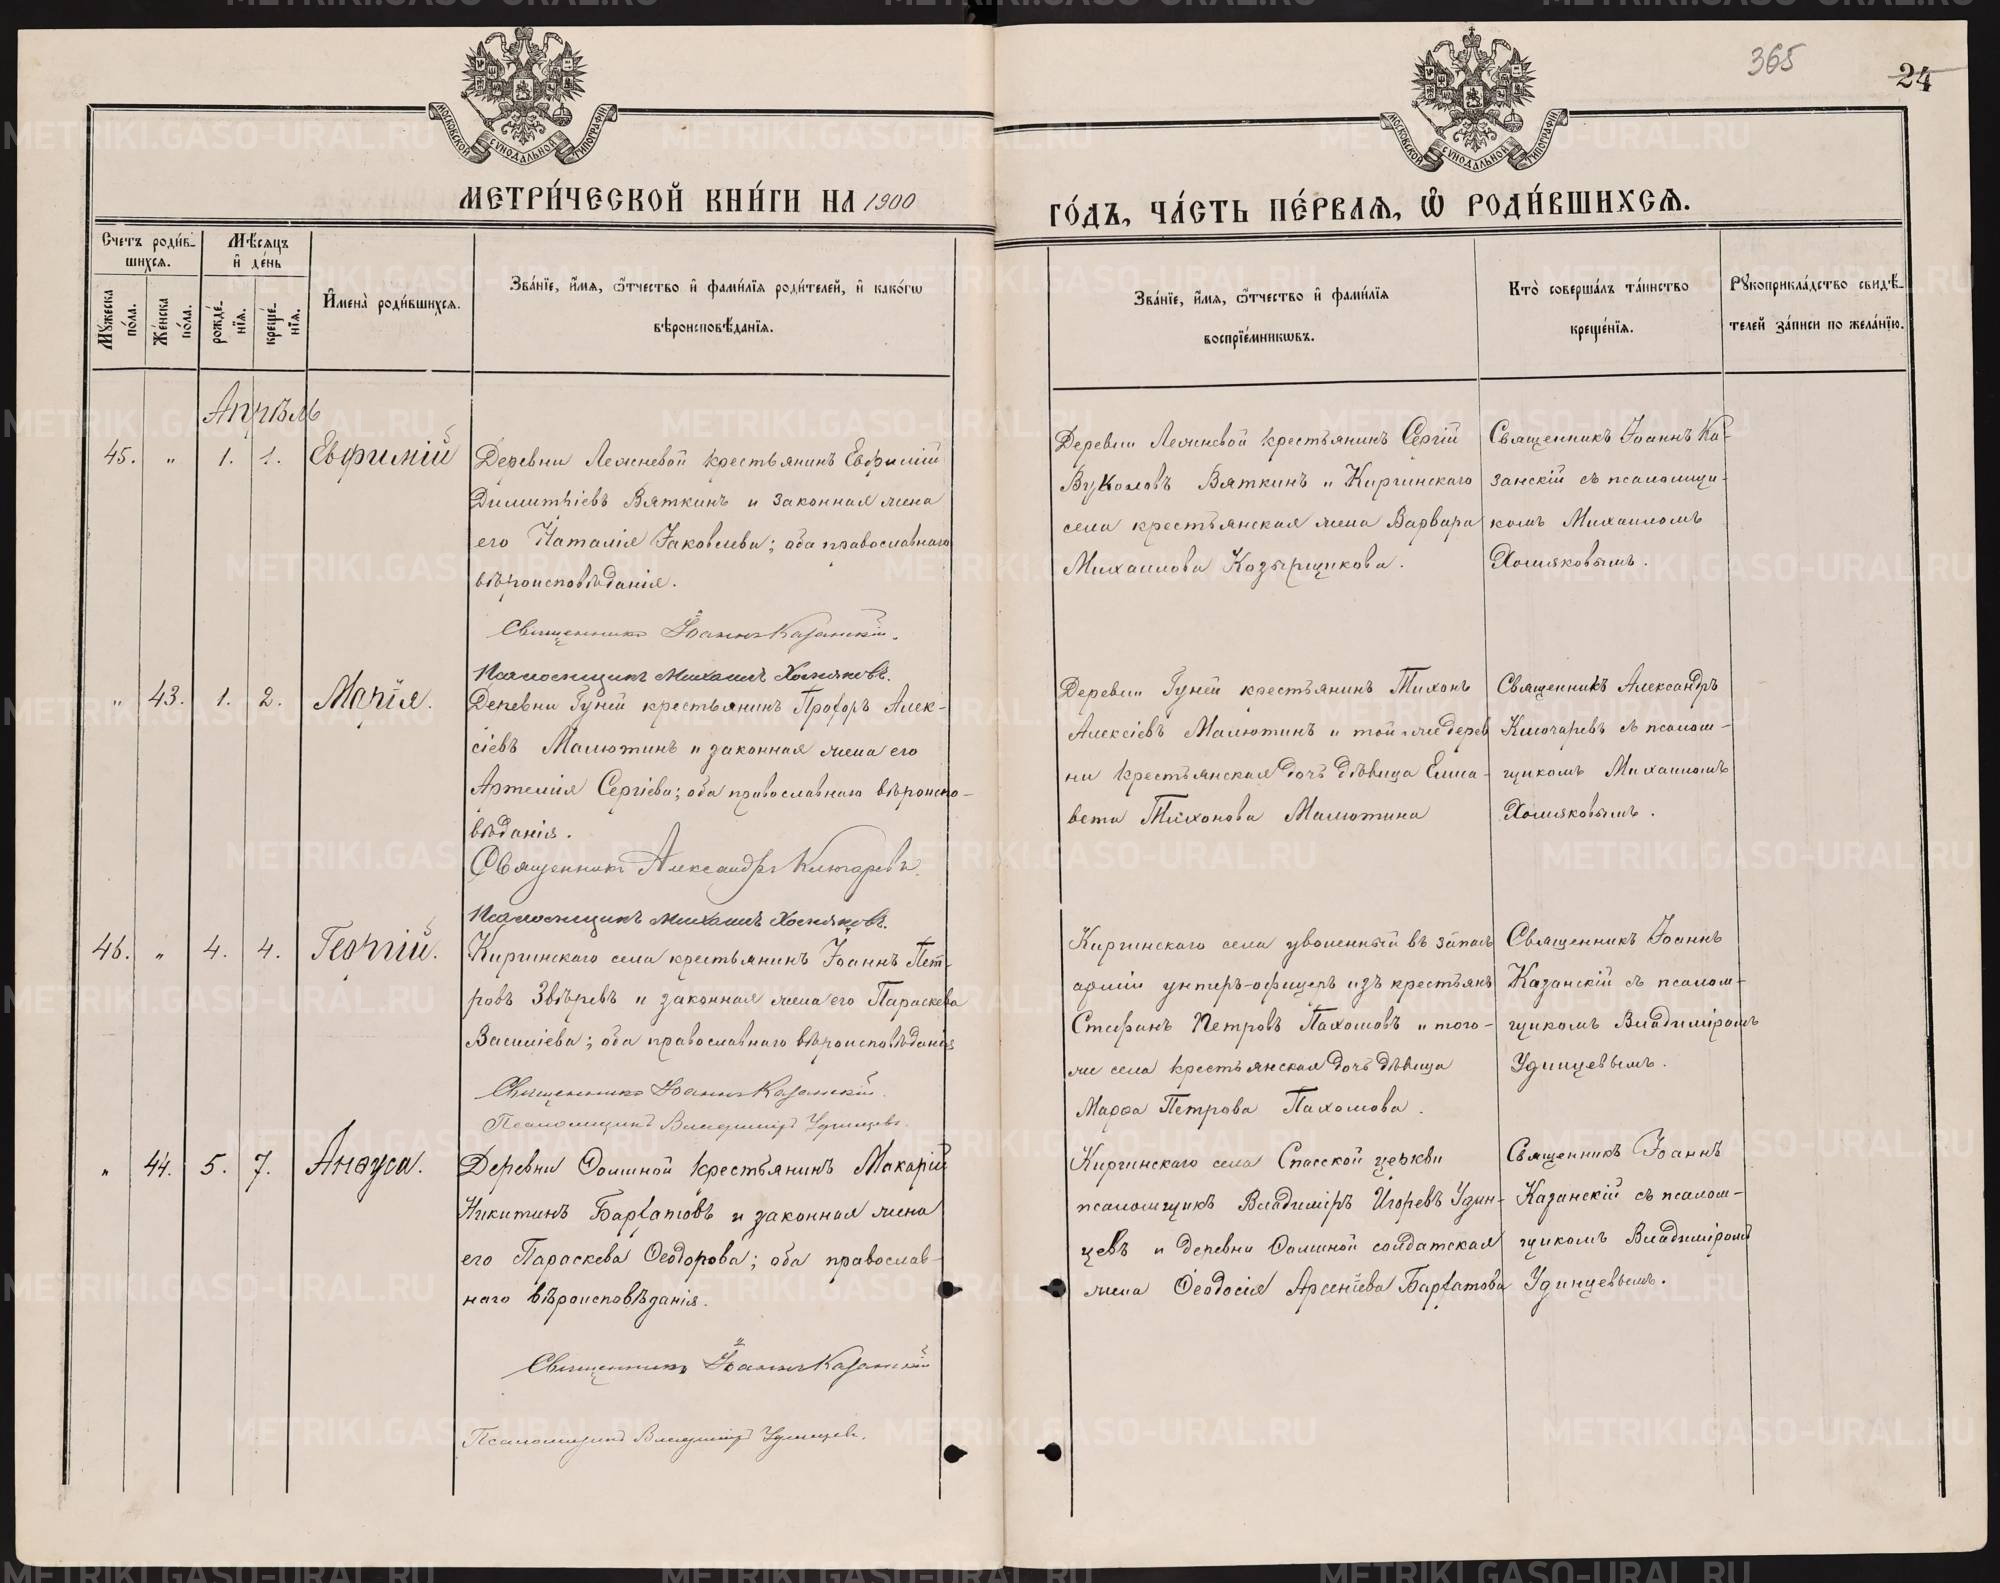 365
24
МОСКОВСКОЙ СѴНОДАЛЬНОЙ ТИПОГРАФІИ
МОСКОВСКОЙ СѴНОДАЛЬНОЙ ТИПОГРАФІИ
МЕТРИ́ЧЕСКОЙ КНИ́ГИ НА 1900
ГО́ДЪ, ЧА́СТЬ ПЕ́РВАЯ, Ѡ҆ РОДИ́ВШИХСЯ.
Счетъ роди́в-
шихся.
Мꙋ́жеска по́ла.
Же́нска по́ла.
Мѣ́сяцъ и҆ де́нь
рожде́нїя.
креще́нїя.
И҆мена̀ роди́вшихся.
Зва́нїе, и҆́мя, ѻ҆́тчество и҆ фами́лїя роди́телей, и҆ како́гѡ
вѣроисповѣ́данїя.
Зва́нїе, и҆́мя, ѻ҆́тчество и҆ фами́лїя
воспрїе́мникѡвъ.
Кто̀ соверша́лъ та́инство
креще́нїя.
Рꙋкоприкла́дство свидѣ́-
телей за́писи по жела́нїю.
Апрѣль
45. „ 1. 1. Евфимій
Деревни Лежневой крестьянинъ Евфимій
Димитріевъ Вяткинъ и законная жена
его Наталія Іаковлева; оба православнаго
вѣроисповѣданія.
Священникъ Іоаннъ Казанскій.
Псаломщикъ Михаилъ Хомяковъ.
Деревни Лежневой крестьянинъ Сергій
Вуколовъ Вяткинъ и Киргинскаго
села крестьянская жена Варвара
Михаилова Козырщикова.
Священникъ Іоаннъ Ка-
занскій съ псаломщи-
комъ Михаиломъ
Хомяковымъ.
„ 43. 1. 2. Марія.
Деревни Гуней крестьянинъ Профоръ Алек-
сіевъ Малютинъ и законная жена его
Артемія Сергіева; оба православнаго вѣроиспо-
вѣданія.
Священникъ Александръ Ключаревъ.
Псаломщикъ Михаилъ Хомяковъ.
Деревни Гуней крестьянинъ Тихонъ
Алексіевъ Малютинъ и той-же дерев
ни крестьянская дочь дѣвица Елиса-
вета Тихонова Малютина
Священникъ Александръ
Ключаревъ съ псалом-
щикомъ Михаиломъ
Хомяковымъ.
46. „ 4. 4. Георгій.
Киргинскаго села крестьянинъ Іоаннъ Пет-
ровъ Звѣревъ и законная жена его Параскева
Василіева; оба православнаго вѣроисповѣданія
Священникъ Іоаннъ Казанскій.
Псаломщикъ Владиміръ Удинцевъ.
Киргинскаго села уволенный въ запасъ
арміи унтеръ-офицеръ изъ крестьянъ
Стефанъ Петровъ Пахомовъ и того-
же села крестьянская дочь дѣвица
Марѳа Петрова Пахомова.
Священникъ Іоаннъ
Казанскій съ псалом-
щикомъ Владиміромъ
Удинцевымъ.
„ 44. 5. 7. Анѳуса.
Деревни Ѳоминой крестьянинъ Макарій
Никитинъ Бархатовъ и законная жена
его Параскева Ѳеодорова; оба православ-
наго вѣроисповѣданія.
Священникъ Іоаннъ Казанскій
Псаломщикъ Владиміръ Удинцевъ.
Киргинскаго села Спасской церкви
псаломщикъ Владиміръ Игоревъ Удин-
цевъ и деревни Ѳоминой солдатская
жена Ѳеодосія Арсеніева Бархатова
Священникъ Іоаннъ
Казанскій съ псалом-
щикомъ Владиміромъ
Удинцевымъ.
METRIKI.GASO-URAL.RU